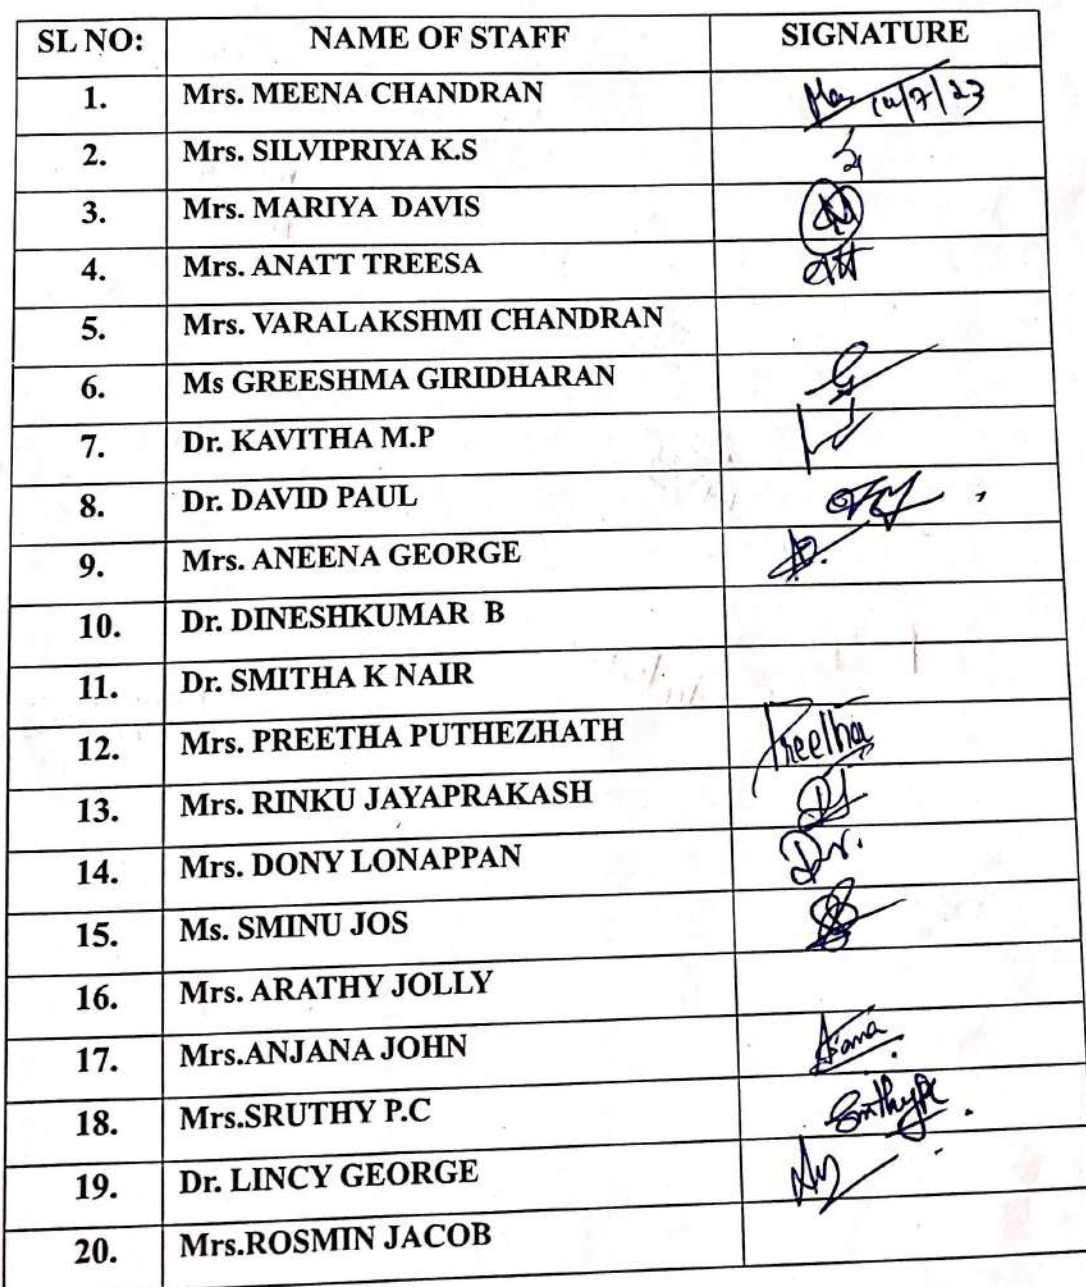 SL NO: NAME OF STAFF SIGNATURE
1. Mrs. MEENA CHANDRAN 14/7/23
2. Mrs. SILVIPRIYA K.S
3. Mrs. MARIYA DAVIS
4. Mrs. ANATT TREESA
5. Mrs. VARALAKSHMI CHANDRAN
6. Ms GREESHMA GIRIDHARAN
7. Dr. KAVITHA M.P
8. Dr. DAVID PAUL
9. Mrs. ANEENA GEORGE
10. Dr. DINESHKUMAR B
11. Dr. SMITHA K NAIR
12. Mrs. PREETHA PUTHEZHATH Preetha
13. Mrs. RINKU JAYAPRAKASH
14. Mrs. DONY LONAPPAN
15. Ms. SMINU JOS
16. Mrs. ARATHY JOLLY
17. Mrs.ANJANA JOHN
18. Mrs.SRUTHY P.C
19. Dr. LINCY GEORGE
20. Mrs.ROSMIN JACOB